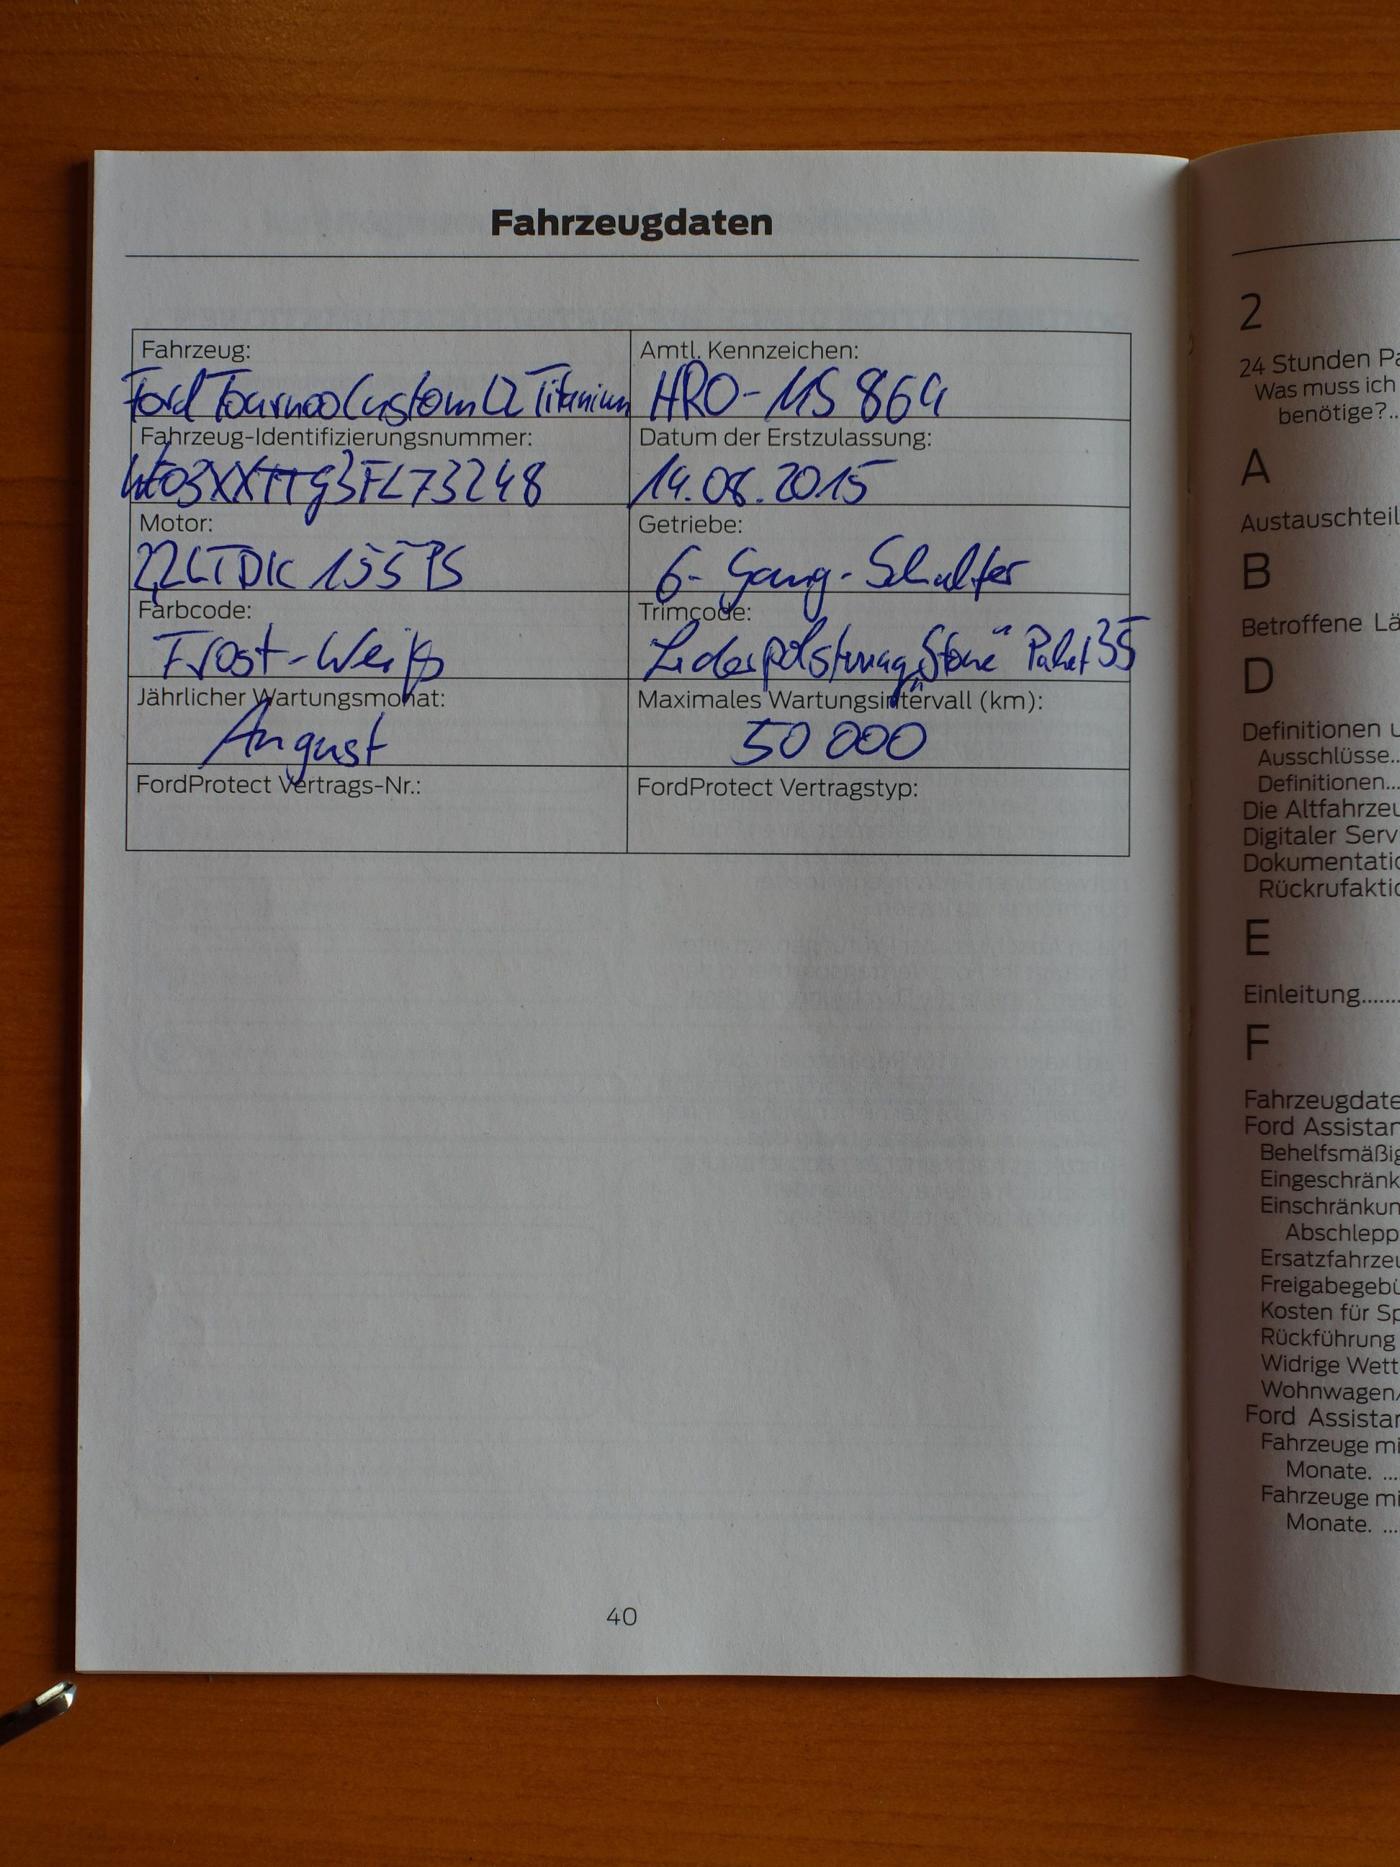 Fahrzeugdaten
Fahrzeug:
Ford Tourneo Custom L2 Titanium
Amtl. Kennzeichen:
HRO-MS 864
Fahrzeug-Identifizierungsnummer:
WF03XXTTG3FL73248
Datum der Erstzulassung:
14.08.2015
Motor:
2,2LTDIC 155 PS
Getriebe:
6-Gang-Schalter
Farbcode:
Frost-Weiß
Trimcode:
Lederpolsterung „Stone“ Paket 35
Jährlicher Wartungsmonat:
August
Maximales Wartungsintervall (km):
50 000
FordProtect Vertrags-Nr.:
FordProtect Vertragstyp:
40
2
24 Stunden Pa
Was muss ich
benötige?..
A
Austauschteil
B
Betroffene Lä
D
Definitionen u
Ausschlüsse..
Definitionen...
Die Altfahrzeu
Digitaler Serv
Dokumentatio
Rückrufaktio
E
Einleitung.......
F
Fahrzeugdate
Ford Assistan
Behelfsmäßig
Eingeschränk
Einschränkun
Abschlepp
Ersatzfahrzeu
Freigabegebü
Kosten für Sp
Rückführung
Widrige Wett
Wohnwagen/
Ford Assistan
Fahrzeuge mi
Monate. ...
Fahrzeuge mi
Monate. ...